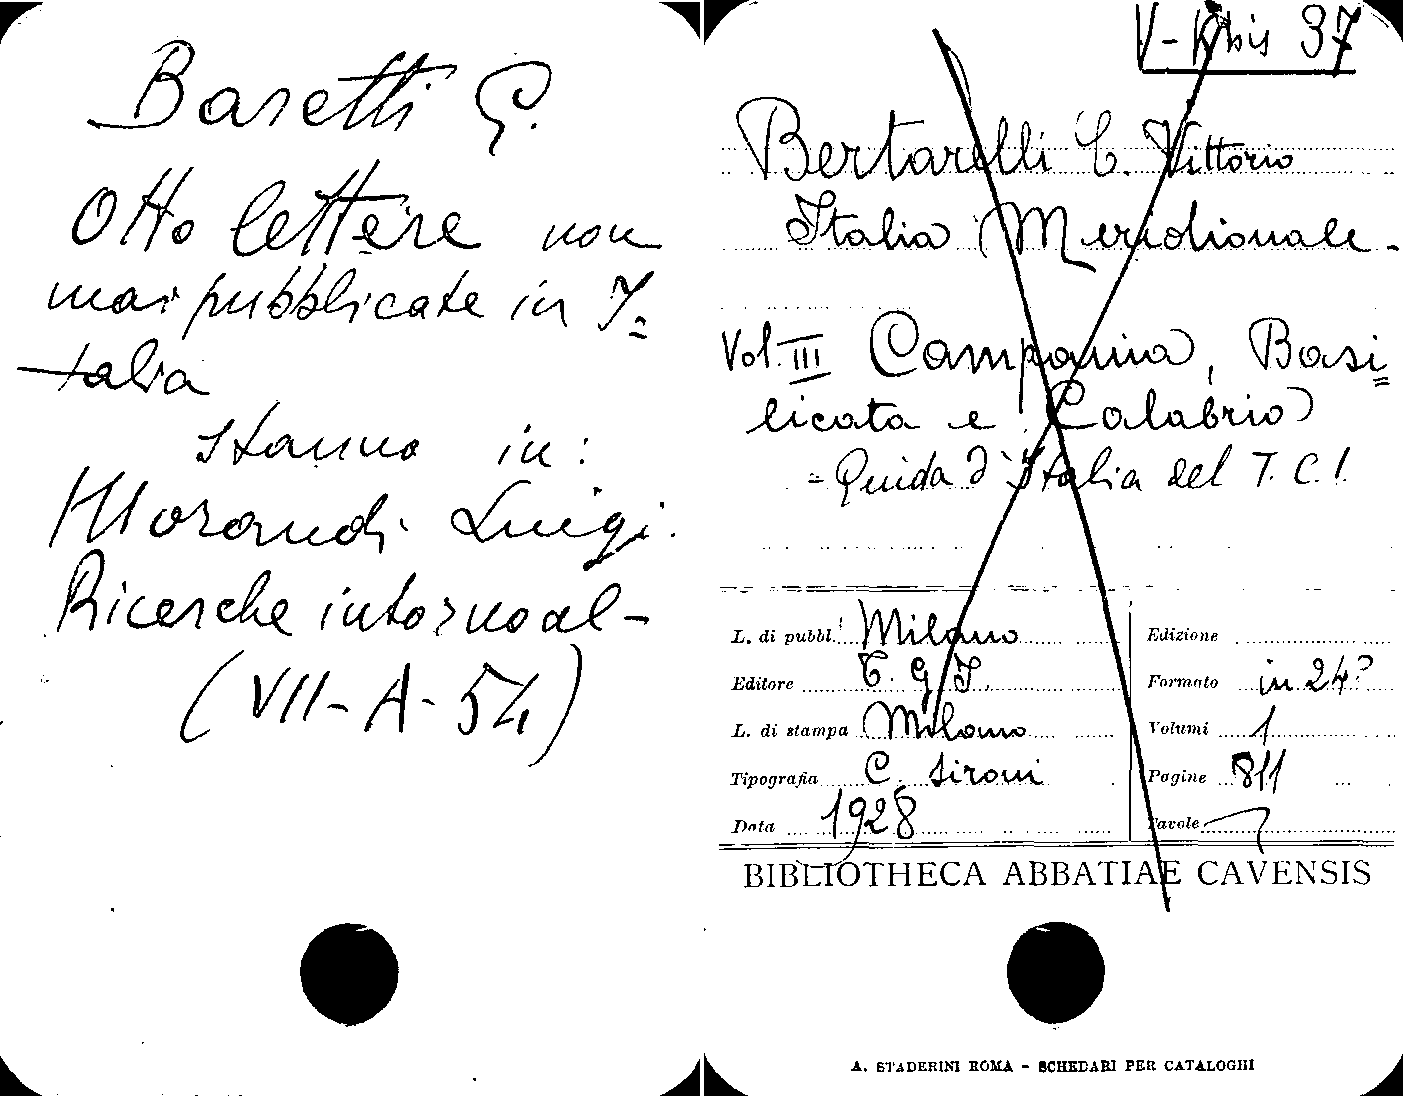 Baretti G.
Otto lettere non
mai pubblicate in I=
talia
stanno in:
Morandi Luigi.
Ricerche intorno al-
(VII-A-54)
V- bis 37
Bertarelli L. Vittorio
Italia Meridionale.
Vol. III Campania, Basi=
licata e Calabria
= Guida d'Italia del T.C.I.
L. di pubbl. Milano
Editore T. C. I.
L. di stampa Milano
Tipografia C. Sironi
Data 1928
Edizione
Formato in 24°
Volumi 1
Pagine 811
Tavole
BIBLIOTHECA ABBATIAE CAVENSIS
A. STADERINI ROMA - SCHEDARI PER CATALOGHI